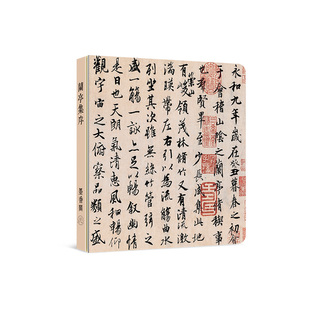 永和九年歲在癸丑暮春之初
于會稽山陰之蘭亭脩稧事
也羣賢畢至少長咸集此地
有崇山峻領茂林脩竹又有清流激
湍暎帶左右引以為流觴曲水
列坐其次雖無絲竹管弦之
盛一觴一詠亦足以暢敘幽情
是日也天朗氣清惠風和暢仰
觀宇宙之大俯察品類之盛
蘭亭集序